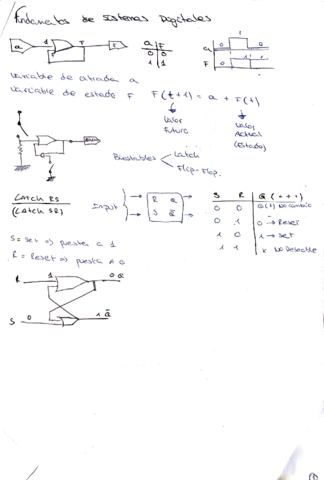 Fundamentos de Sistemas Digitales
a 1 F
a F
0 0
1 1
a 0 1 0
F 0 1
Variable de entrada a
Variable de estado F F(t+1) = a + F(t)
Valor Futuro
Valor Actual (Estado)
Biestables Latch
Flip-Flop.
Latch RS
(Latch SR)
Input
R Q
S Q̅
S R Q(t+1)
0 0 Q(t) No cambio
0 1 0 → Reset
1 0 1 → Set
1 1 x No Deseable
S = Set ⇒ puesta a 1
R = Reset ⇒ puesta a 0
R 1 0 Q
S 0 1 Q̅